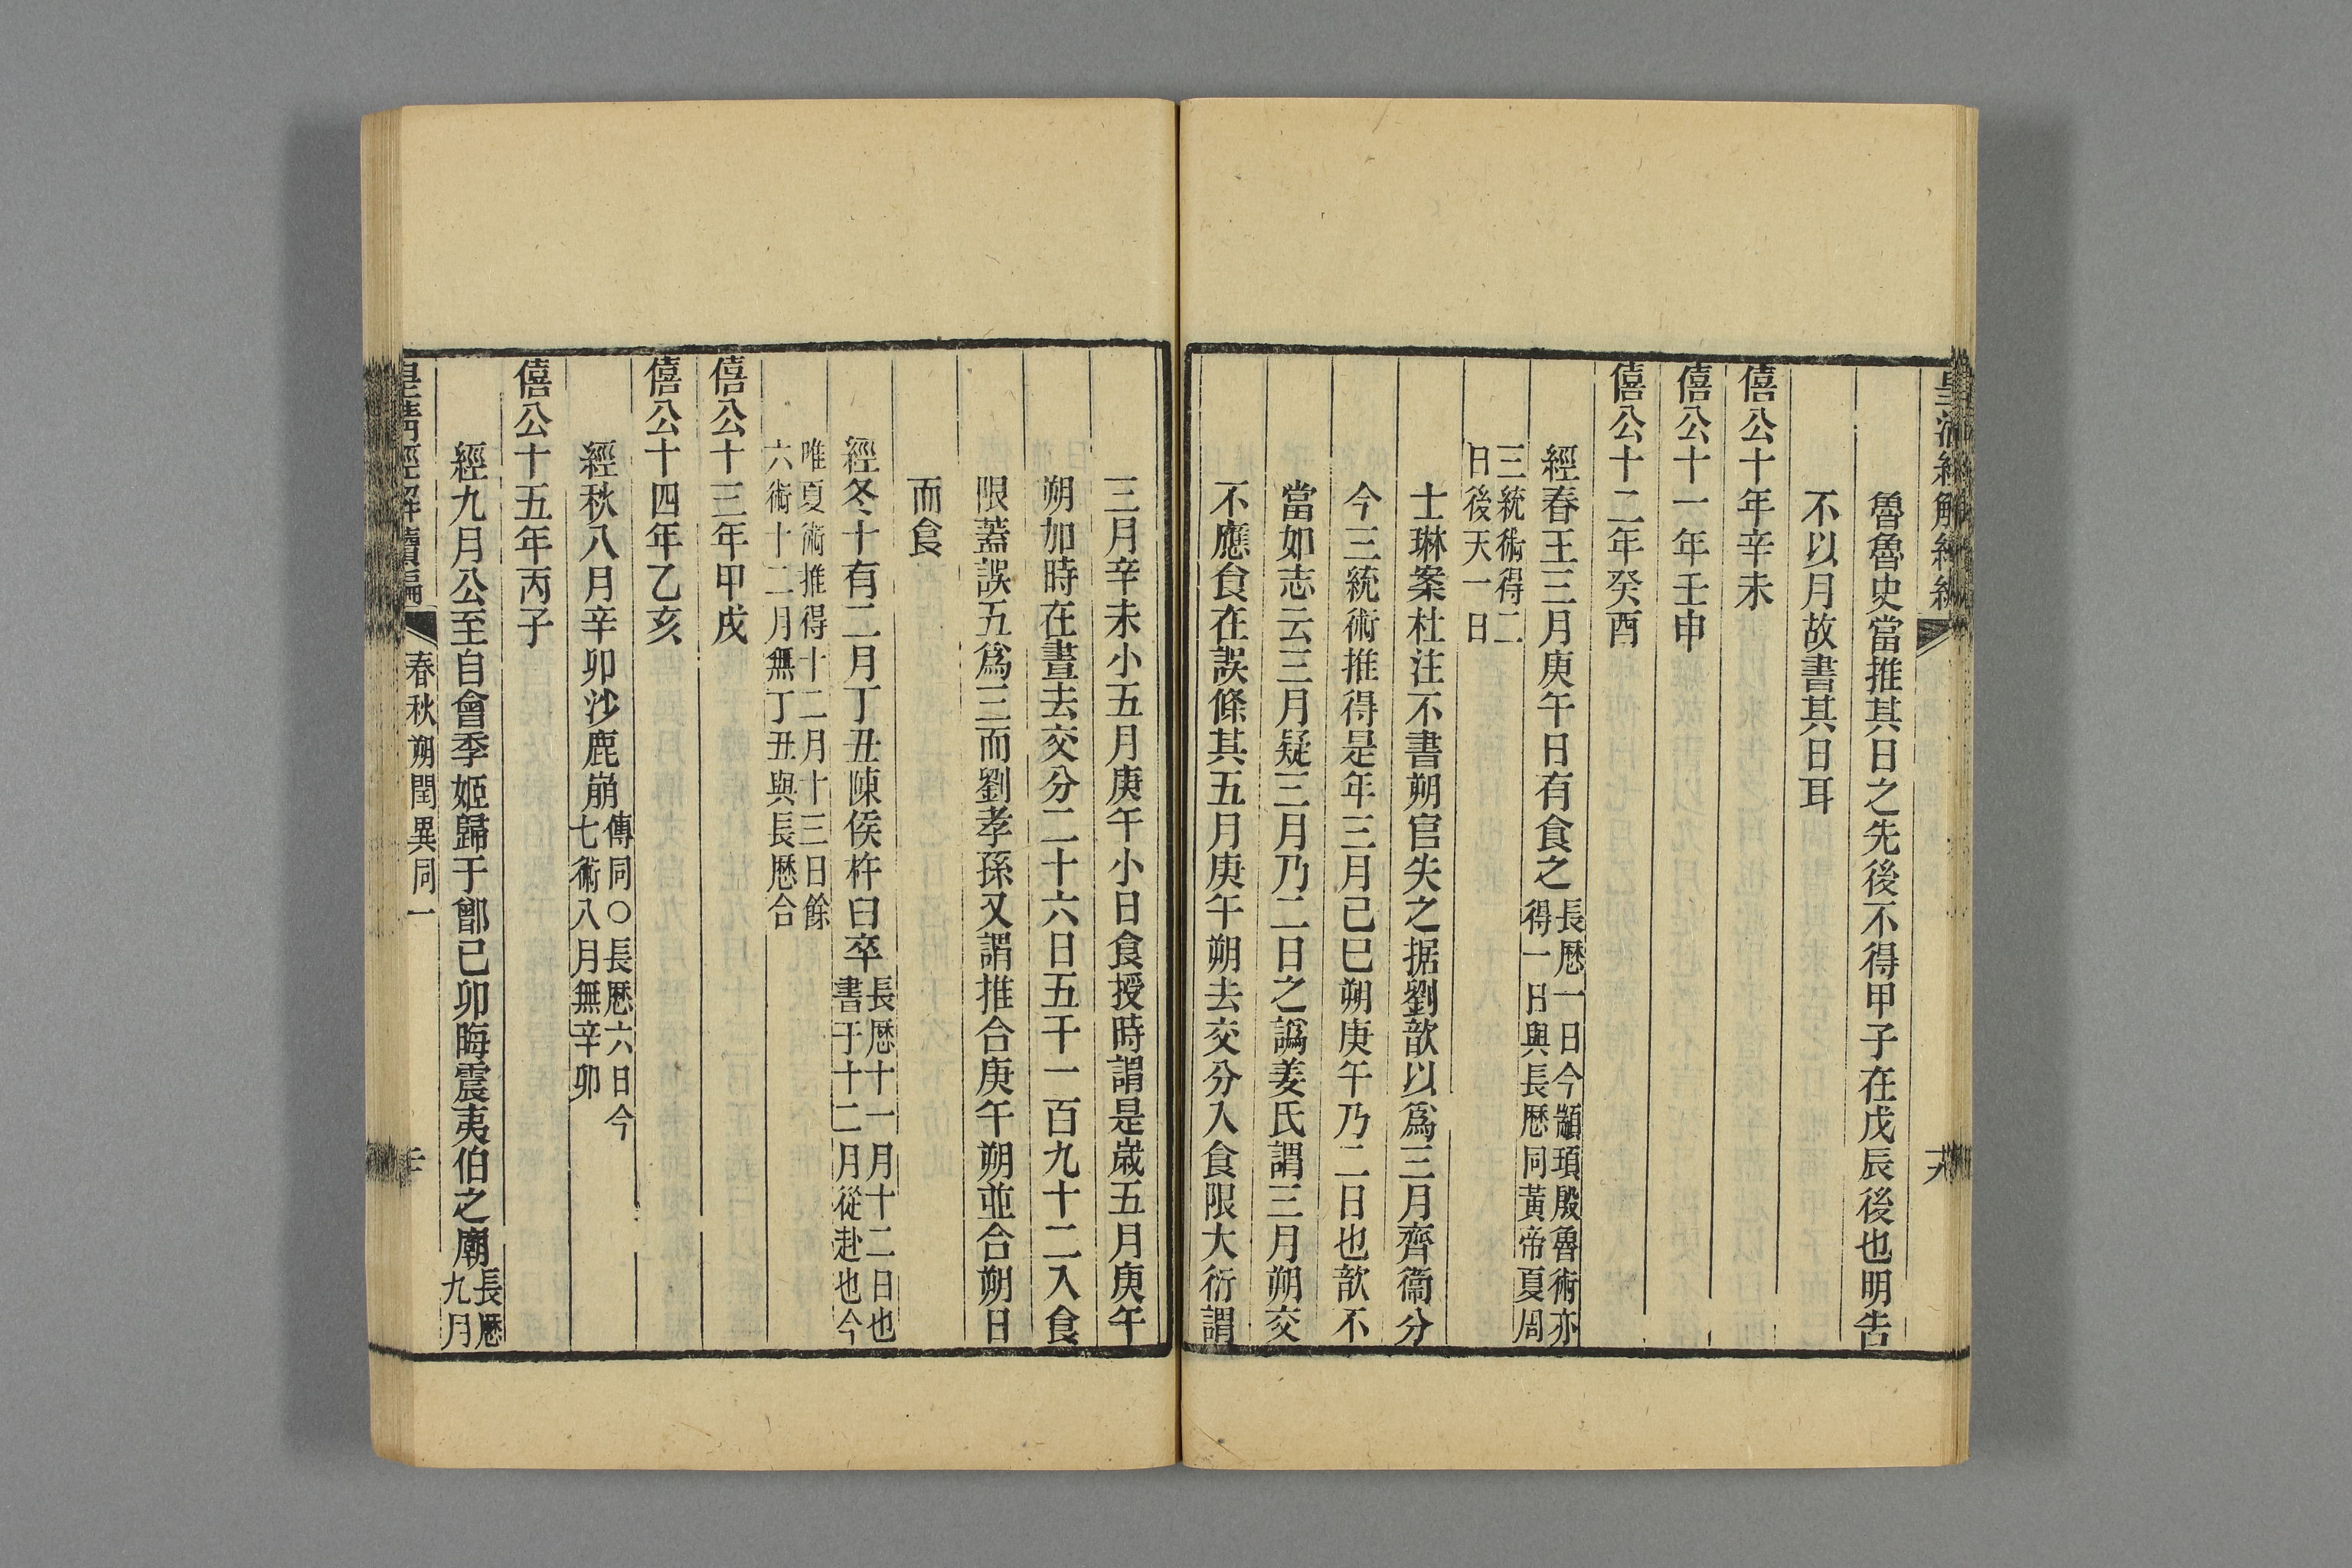 魯魯史當推其日之先後不得甲子在戊辰後也明告
不以月故書其日耳
僖公十年辛未
僖公十一年壬申
僖公十二年癸酉
經春王三月庚午日有食之長厯一日今顓頊殷魯術亦
得一日與長厯同黃帝夏周
三統術得二
日後天一日
士琳案杜注不書朔官失之据劉歆以爲三月齊衞分
今三統術推得是年三月己巳朔庚午乃二日也歆不
當如志云三月疑三月乃二日之譌姜氏謂三月朔交
不應食在誤條其五月庚午朔去交分入食限大衍謂
三月辛未小五月庚午小日食授時謂是歲五月庚午
朔加時在晝去交分二十六日五千一百九十二入食
限蓋誤五爲三而劉孝孫又謂推合庚午朔並合朔日
而食
經冬十有二月丁丑陳侯杵臼卒長厯十一月十二日也
書于十二月從赴也今
唯夏術推得十二月十三日餘
六術十二月無丁丑與長厯合
僖公十三年甲戌
僖公十四年乙亥
經秋八月辛卯沙鹿崩傳同○長厯六日今
七術八月無辛卯
僖公十五年丙子
經九月公至自會季姬歸于鄫己卯晦震夷伯之廟長厯
九月
皇淸經解續編
春秋朔閏異同一